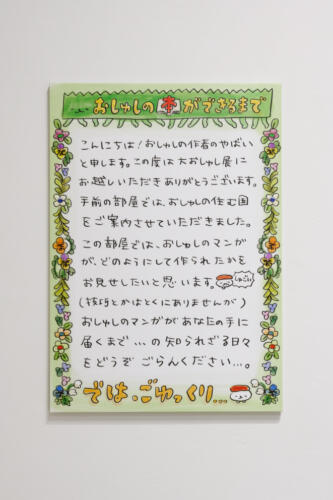 おしゅしの本ができるまで
こんにちは！おしゅしの作者のやばい
と申します。この度は大おしゅし展に
お越しいただきありがとうございます。
手前の部屋では、おしゅしの住む国
をご案内させていただきました。
この部屋では、おしゅしのマンガ
が、どのようにして作られたかを
お見せしたいと思います。
(技巧とかはとくにありませんが)
おしゅしのマンガがあなたの手に
届くまで…の知られざる日々
をどうぞごらんください…。
では、ごゆっくり…